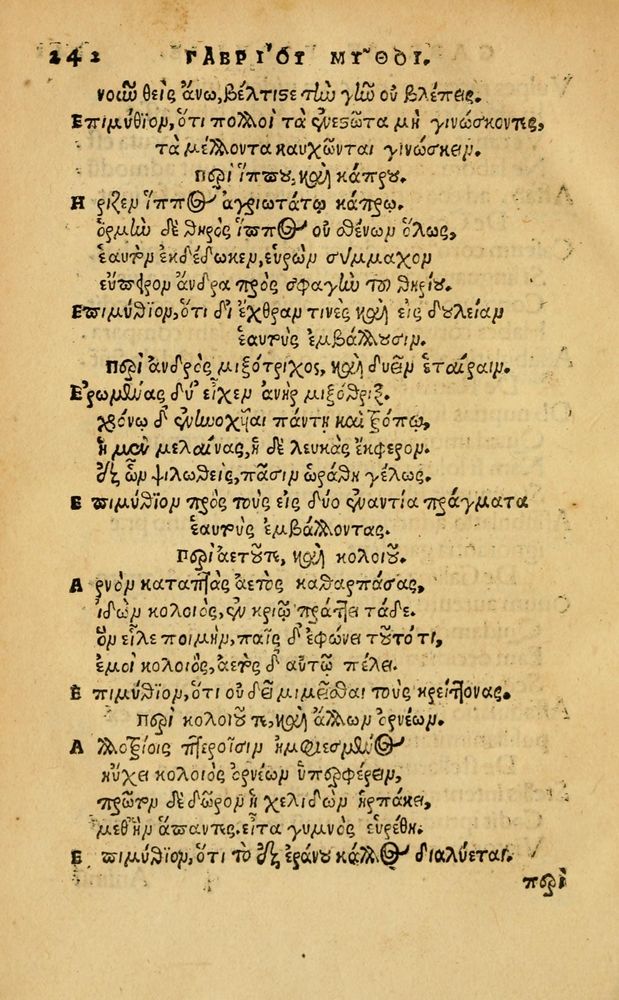 242 ΓΑΒΡΙ´ΟΥ ΜΥ~ΘΟΙ.
νοῦν θεὶς ἄνω, βέλτιστε τὴν γῆν οὐ βλέπεις.
Επιμύθιον, ὅτι πολλοὶ τὰ ἐνεστῶτα μὴ γινώσκοντες,
τὰ μέλλοντα καυχῶνται γινώσκειν.
Περὶ ἵππου, καὶ κάπρου.
Ηριζεν ἵππος ἀγριωτάτῳ κάπρῳ.
ὁρμὴν δὲ θηρὸς ἵππος οὐ σθένων ὅλως,
ἑαυτὸν ἐκδέδωκεν, εὑρὼν σύμμαχον
εὔπορον ἄνδρα πρὸς σφαγὴν τοῦ θηρίου.
Επιμύθιον, ὅτι δι ἔχθραν τινὲς καὶ εἰς δουλείαν
ἑαυτοὺς ἐμβάλλουσιν.
Περὶ ἀνδρὸς μιξότριχος, καὶ δυεῖν ἑταίραιν.
Ερωμένας δύ εἶχεν ἀνὴρ μιξόθριξ.
χρόνῳ δ συνωχεῖται πάντη καὶ τρόπῳ,
ἡ μὲν μελαίνας, ἡ δὲ λευκὰς ἔκφερον.
ἐξ ὧν ψιλωθεὶς, πᾶσιν ὡράθη γέλως.
Επιμύθιον πρὸς τοὺς εἰς δύο ἐναντία πράγματα
ἑαυτοὺς ἐμβάλλοντας.
Περὶ ἀετοῦ τε, καὶ κολοιοῦ.
Αρνὸν καταπτὰς ἀετὸς καθαρπάσας,
ἰδὼν κολοιὸς, ἐν κριῷ πράττει τάδε.
ὃν εἷλε ποιμὴν, παῖς δ ἐφώνει τοῦτότι,
ἐμοὶ κολοιὸς, ἀετὸς δ αὐτῷ πέλει.
Επιμύθιον, ὅτι οὐ δεῖ μιμεῖσθαι τοὺς κρείττονας.
Περὶ κολοιοῦ τε, καὶ ἄλλων ὀρνέων.
Αλλοτρίοις πτεροῖσιν ἠμφιεσμένος
ηὔχει κολοιὸς ὀρνέων ὑπερφέρειν,
πρῶτον δὲ δῶρον ἡ χελιδὼν ἡρπάκει,
μεθ ἣν ἅπαντες. εἶτα γυμνὸς εὑρέθη.
Επιμύθιον, ὅτι τὸ ἐξ ἐράνου κάλλος διαλύεται.
περὶ